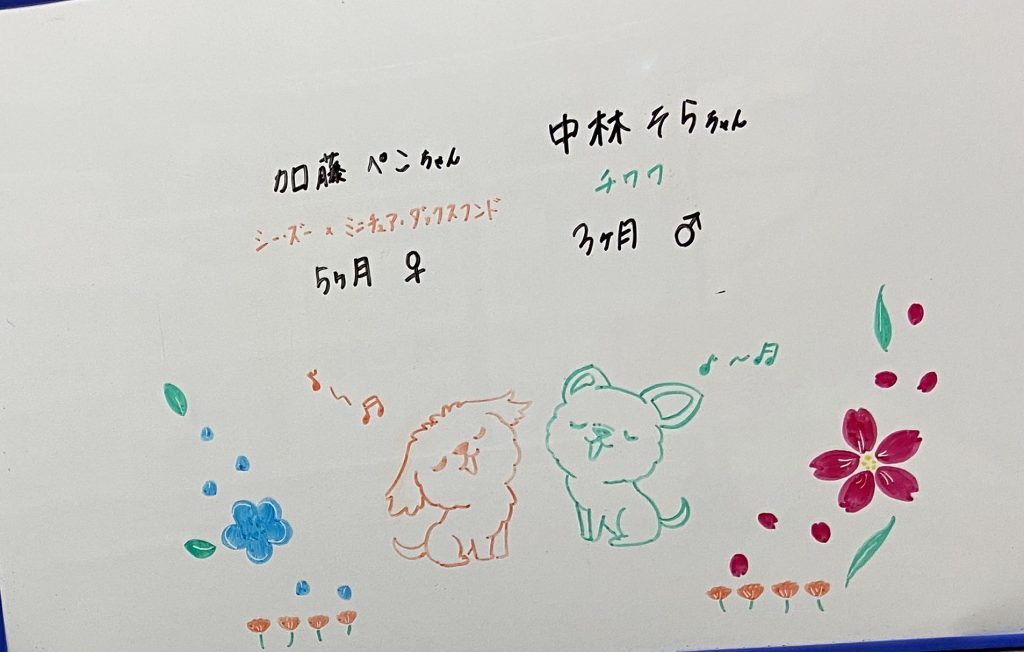 加藤 ペンちゃん
シー・ズー × ミニチュア・ダックスフンド
5ヶ月 ♀
中林 そらちゃん
チワワ
3ヶ月 ♂